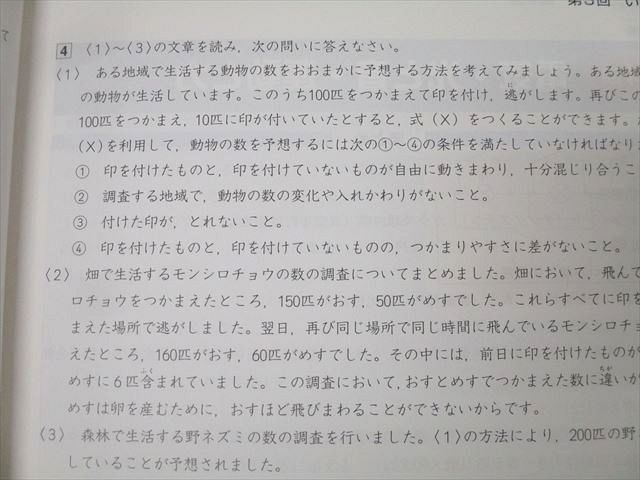 第3回 い
4 〈1〉~〈3〉の文章を読み,次の問いに答えなさい。
〈1〉 ある地域で生活する動物の数をおおまかに予想する方法を考えてみましょう。ある地域
の動物が生活しています。このうち100匹をつかまえて印を付け,逃がします。再びこの
100匹をつかまえ,10匹に印が付いていたとすると,式(X)をつくることができます。
(X)を利用して,動物の数を予想するには次の①~④の条件を満たしていなければなりま
① 印を付けたものと,印を付けていないものが自由に動きまわり,十分混じり合うこ
② 調査する地域で,動物の数の変化や入れかわりがないこと。
③ 付けた印が,とれないこと。
④ 印を付けたものと,印を付けていないものの,つかまりやすさに差がないこと。
〈2〉 畑で生活するモンシロチョウの数の調査についてまとめました。畑において,飛んで
ロチョウをつかまえたところ,150匹がおす,50匹がめすでした。これらすべてに印を
まえた場所で逃がしました。翌日,再び同じ場所で同じ時間に飛んでいるモンシロチョ
えたところ,160匹がおす,60匹がめすでした。その中には,前日に印を付けたものが
めすに6匹含まれていました。この調査において,おすとめすでつかまえた数に違いが
めすは卵を産むために,おすほど飛びまわることができないからです。
〈3〉 森林で生活する野ネズミの数の調査を行いました。〈1〉の方法により,200匹の野
していることが予想されました。